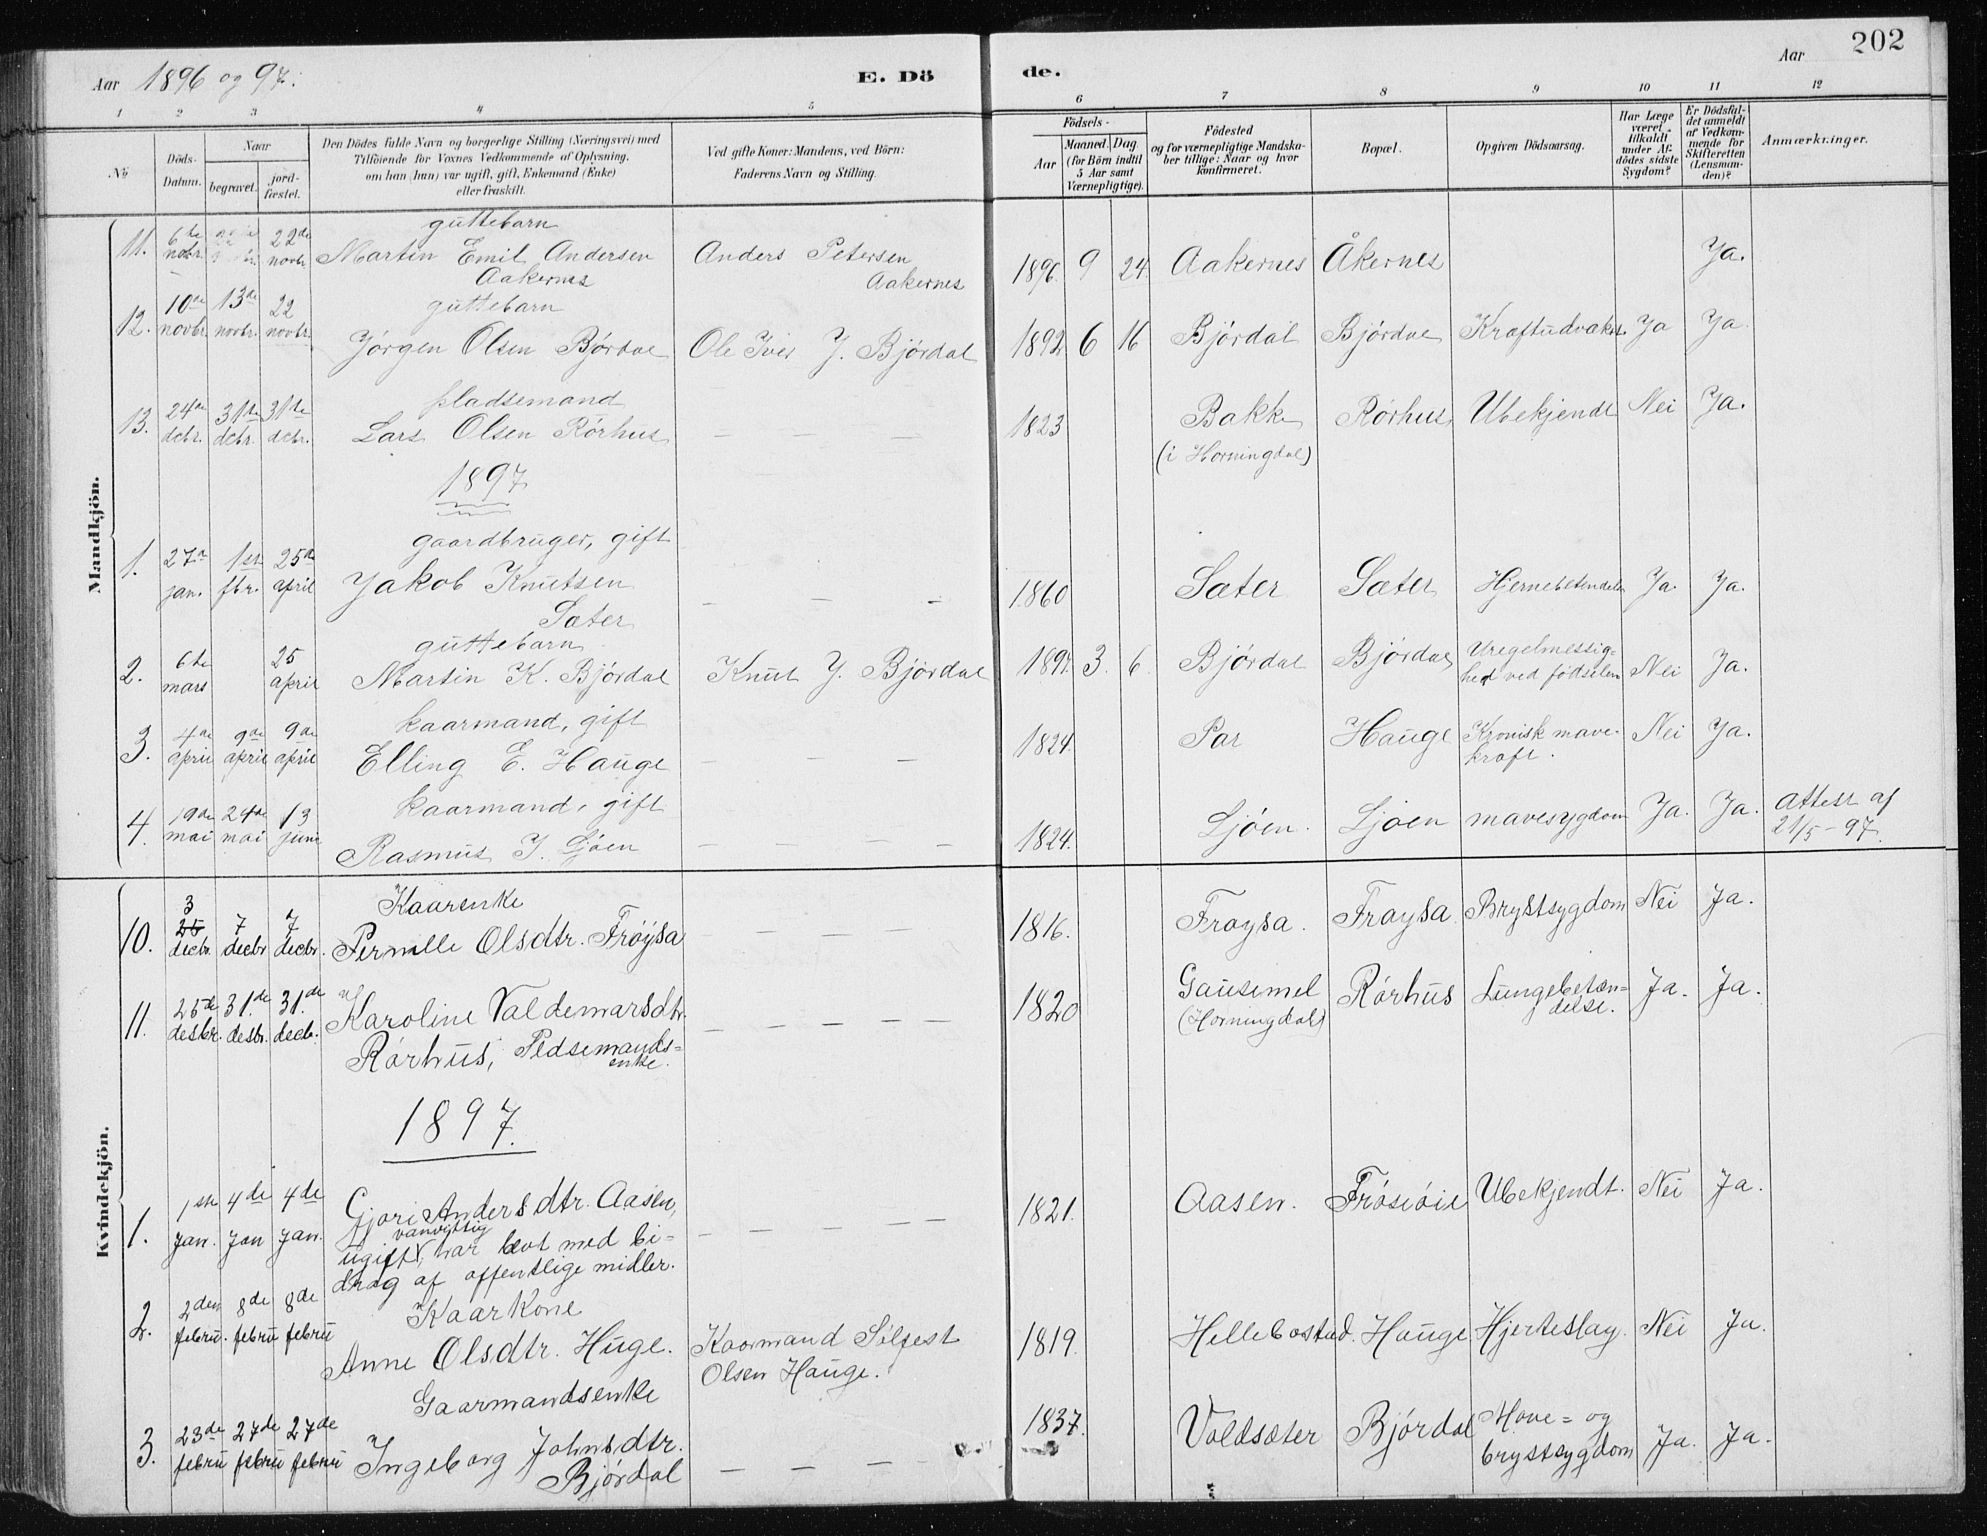 Aar 1896 og 97.
E. Dö de.
Aar 202
1 2 3 4 5 6 7 8 9 10 11 12
No
Döds-Datum.
Naar
begravet.
jord-fæstet.
Den Dödes fulde Navn og borgerlige Stilling (Næringsvei) med
Tilföiende for Voxnes Vedkommende af Oplysning,
om han (hun) var ugift, gift, Enkemand (Enke)
eller fraskilt.
Ved gifte Koner: Mandens, ved Börn:
Faderens Navn og Stilling.
Födsels-
Aar
Maaned. Dag
(for Börn indtil
5 Aar samt
Værnepligtige).
Födested
og for værnepligtige Mandska-
ber tillige: Naar og hvor
konfirmeret.
Bopæl.
Opgiven Dödsaarsag.
Har Læge
været
tilkaldt
under Af-
dödes sidste
Sygdom?
Er Dödsfal-
det anmeldt
af Vedkom-
mende for
Skifteretten
(Lensman-
den)?
Anmærkninger.
Mandkjön.
guttebarn
11. 6te novbr. 22de novbr Martin Emil Andersen Aakernes Anders Petersen Aakernes 1896 9 24 Aakernes Åkernes Ja.
guttebarn
12. 10de novbr. 13de novbr. 22 novbr. Jørgen Olsen Bjørdal Ole Iver J. Björdal 1892 6 16 Björdal Björdal Ja Ja
pladsemand
13. 24de dcbr. 31te dcbr. 31te dcbr. Lars Olsen Rörhus — — — 1823 Bakke (i Horningdal) Rörhus Ubekjendt Nei Ja.
1897
gaardbruger, gift
1. 27de jan. 1ste fbr. 25de april Jakob Knutsen Sæter — — — 1860 Sæter Sæter Hjernebetendelse Ja. Ja.
guttebarn
2. 6te mars 25 april Martin K. Björdal Knut J. Björdal 1897. 3. 6 Björdal Björdal Uregelmessig-
hed ved födselen Nei Ja.
kaarmand, gift
3. 4de april 9de april 9de april Elling E. Hauge — — — 1824. Hauge Kronisk mave-
kræft. Nei Ja.
kaarmand, gift
4. 19de mai 24de mai 13 juni Rasmus J. Ljöen — — — — 1824. Ljöen. Ljöen mavesygdom Ja. Ja. attest af
21/5-97.
Kvindekjön.
Kaarenke
10. 3 decbr. 7 decbr 7 decbr. Pernille Olsdtr. Fröysa — — — — 1816. Fröysa. Fröysa Brystsygdom Nei Ja.
11. 25de desbr. 31.de desbr. 31.de decb. Karoline Valdemarsdtr.
Rörhus, Pldsemands=
enke. — — — — — 1820 Gausemel (Horningdal) Rörhus Lungebetæn=
delse. Ja. Ja.
1897.
1. 1ste Jan. 4de Jan 4de Jan. Gjøri Andersdtr. Aasen,
vanvittig
ugift, har levt med bi-
drag af offentlige midler. — — — — — 1821. Aasen. Ubekjendt. Nei Ja.
Kaarkone
2. 2den febru. 8de febru 8de febru Anne Olsdtr. Huge. Kaarmand Silfest
Olsen Hauge. 1819. Hellebostad. Hauge Hjerteslag. Nei Ja.
Gaarmandsenke
3. 23de febru 27de febru 27de febru Ingeborg Johnsdtr.
Björdal — — — — 1837. Voldsæter Björdal Mave= og
brystsygdom Ja. Ja.